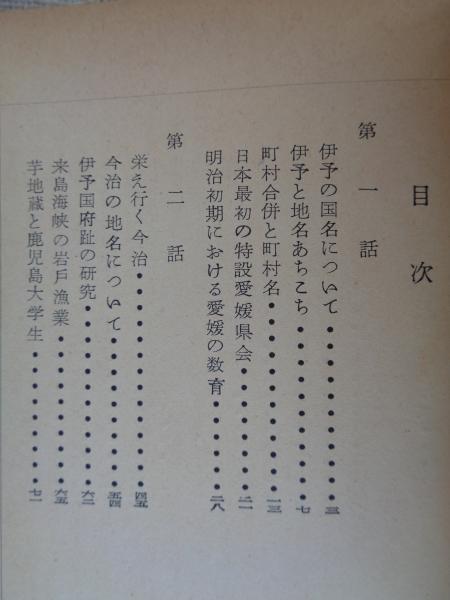 目次
第一話
伊予の国名について・・・・・・・・・・三
伊予と地名あちこち・・・・・・・・・・七
町村合併と町村名・・・・・・・・・・一三
日本最初の特設愛媛県会・・・・・・・二一
明治初期における愛媛の数育・・・・・二八
第二話
栄え行く今治・・・・・・・・・・・・四五
今治の地名について・・・・・・・・・五四
伊予国府趾の研究・・・・・・・・・・六二
来島海峡の岩戸漁業・・・・・・・・・六五
芋地蔵と鹿児島大学生・・・・・・・・七一